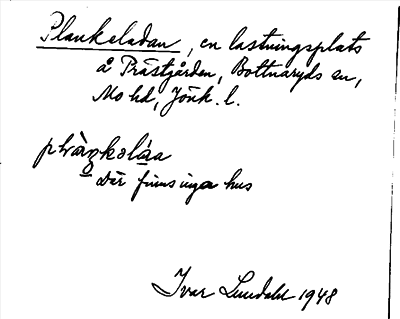 Plankeladan, en lastningsplats
å Prästgården, Bottnaryds sn,
Mo hd, Jönk. l.
plràŋkoláa
där finns inga hus
Ivar Lundahl 1948